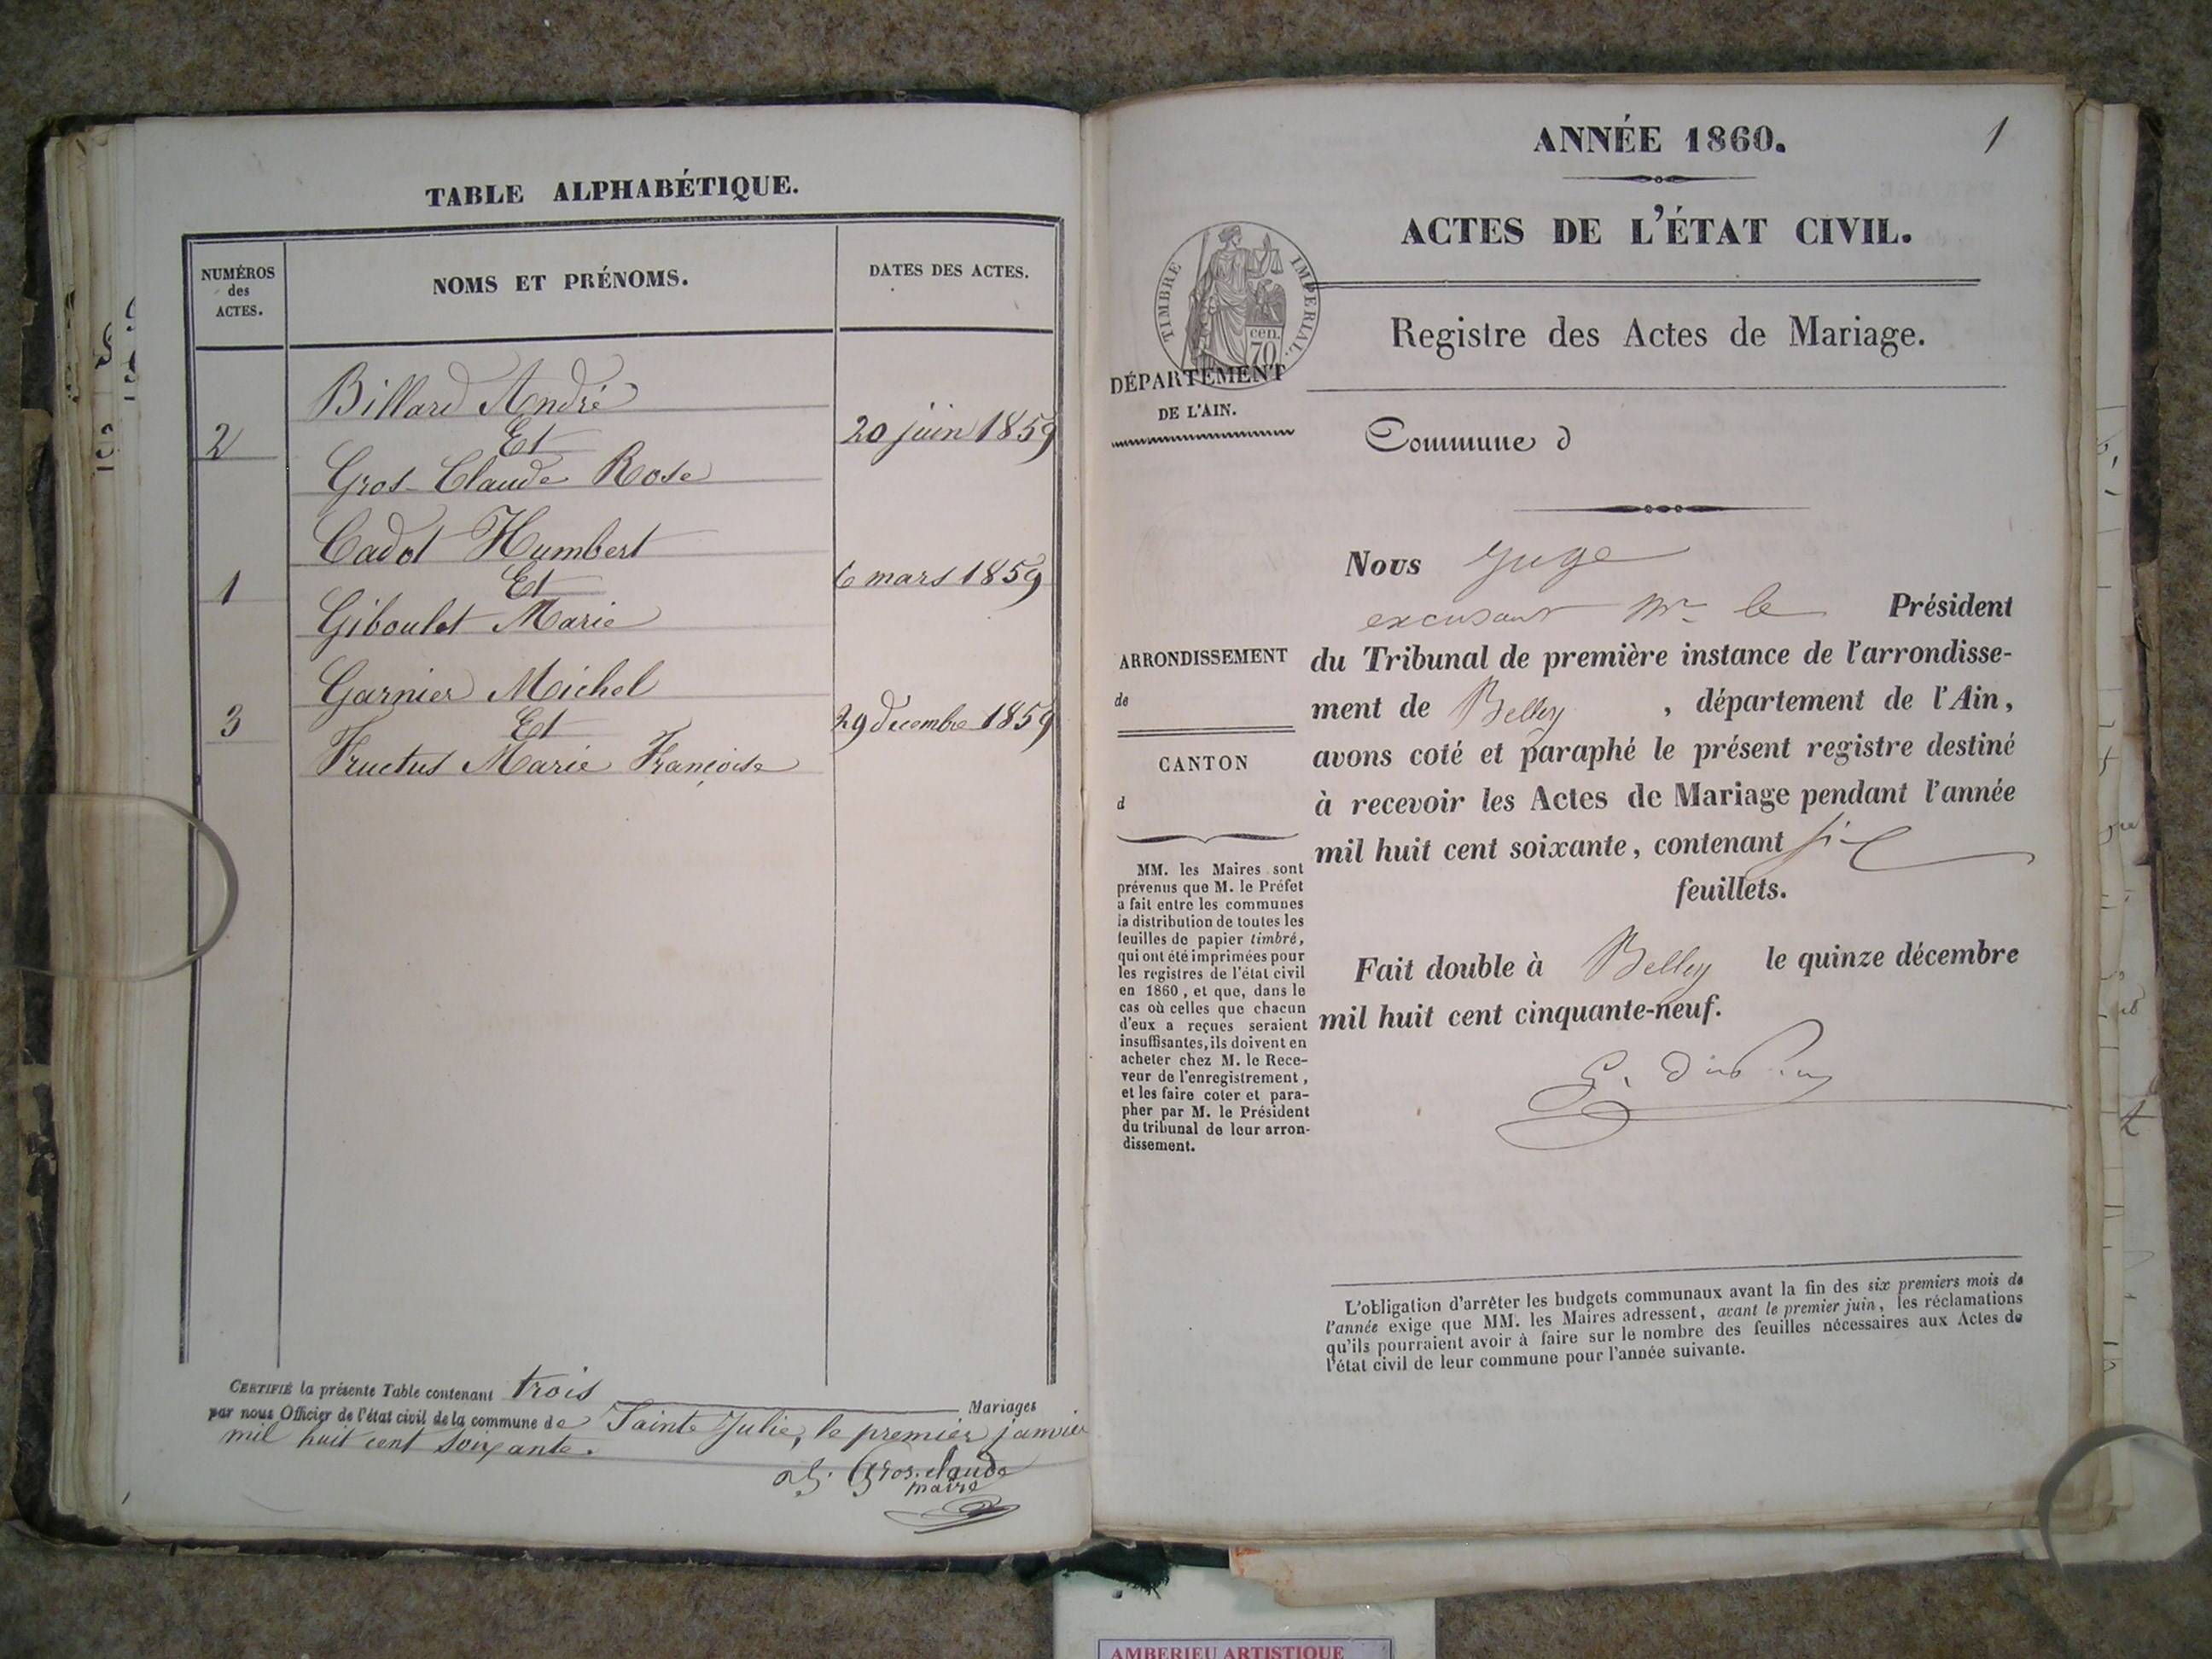 TABLE ALPHABÉTIQUE.
NUMÉROS
des
ACTES.
NOMS ET PRÉNOMS.
DATES DES ACTES.
Billard André
2 Et 20 juin 1859
Gros-Claude Rose
Cadot Humbert
1 Et 6 mars 1859
Giboulet Marie
Garnier Michel
3 Et 29 decembre 1859
Fructus Marie Françoise
CERTIFIÉ la présente Table contenant trois Mariages
par nous Officier de l'état civil de la commune de Sainte Julie, le premier janvier
mil huit cent soixante.
Gros-claude
maire
1
ANNÉE 1860.
ACTES DE L'ÉTAT CIVIL.
TIMBRE IMPERIAL.
cen.
70
Registre des Actes de Mariage.
DÉPARTEMENT
DE L'AIN.
Commune d
Nous Juge
excusant Mr le Président
du Tribunal de première instance de l'arrondisse-
ment de Belley, département de l'Ain,
avons coté et paraphé le présent registre destiné
à recevoir les Actes de Mariage pendant l'année
mil huit cent soixante, contenant six
feuillets.
Fait double à Belley le quinze décembre
mil huit cent cinquante-neuf.
ARRONDISSEMENT
de
CANTON
d
MM. les Maires sont
prévenus que M. le Préfet
a fait entre les communes
la distribution de toutes les
feuilles de papier timbré,
qui ont été imprimées pour
les registres de l'état civil
en 1860, et que, dans le
cas où celles que chacun
d'eux a reçues seraient
insuffisantes, ils doivent en
acheter chez M. le Rece-
veur de l'enregistrement,
et les faire coter et para-
pher par M. le Président
du tribunal de leur arron-
dissement.
L'obligation d'arrêter les budgets communaux avant la fin des six premiers mois de
l'année exige que MM. les Maires adressent, avant le premier juin, les réclamations
qu'ils pourraient avoir à faire sur le nombre des feuilles nécessaires aux Actes de
l'état civil de leur commune pour l'année suivante.
AMBERIEU ARTISTIQUE